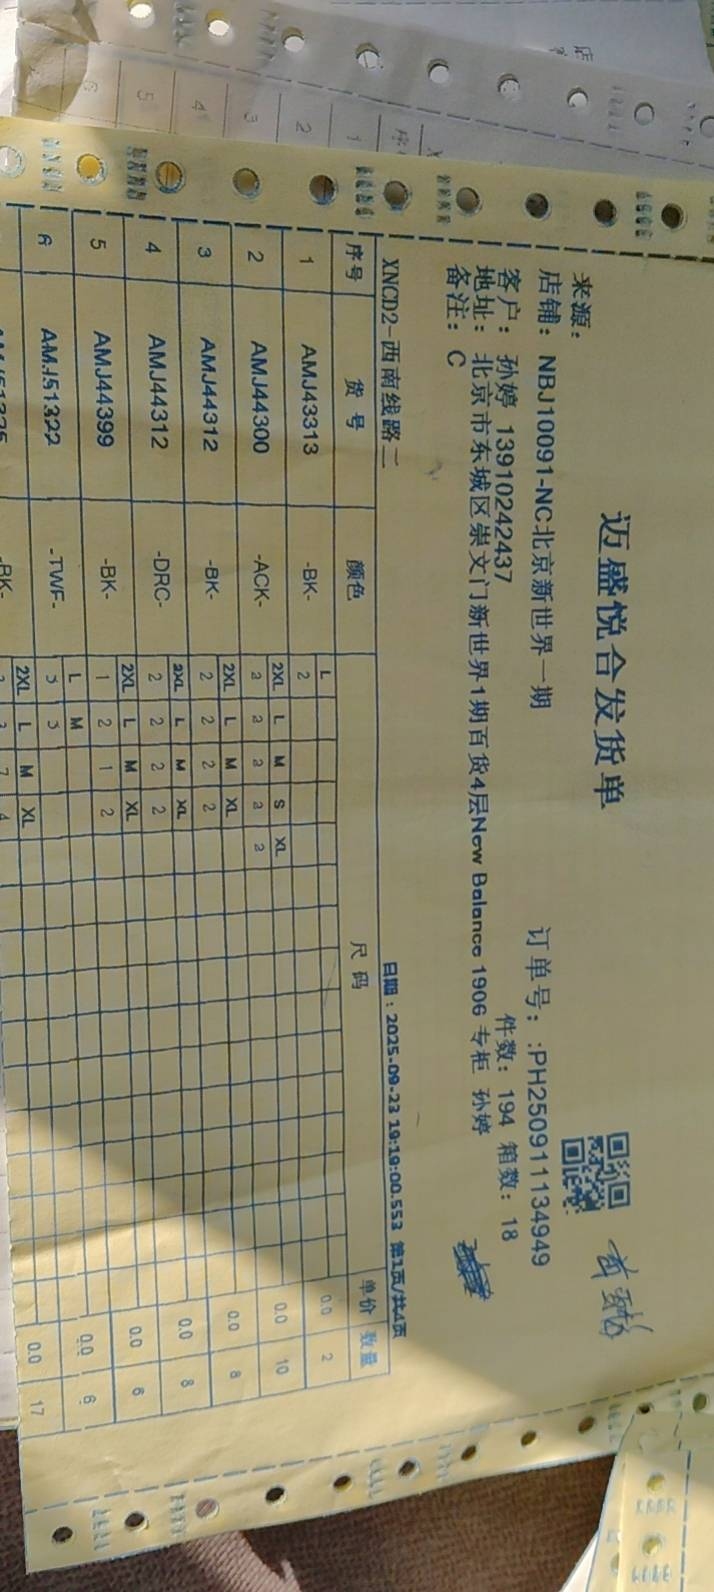 迈盛悦合发货单
来源：
店铺：NBJ10091-NC北京新世界一期 订单号：:PH250911134949
客户：孙婷 13910242437 件数：194 箱数：18
地址：北京市东城区崇文门新世界1期百货4层New Balance 1906 专柜 孙婷
备注：C
XNCD2-西南线路二 日期：2025-09-23 19:19:00.553 第1页/共4页
序号 货号 颜色 尺码 单价 数量
L
1 AMJ43313 -BK- 2 0.0 2
2XL L M S XL
2 AMJ44300 -ACK- 2 2 2 2 2 0.0 10
2XL L M XL
3 AMJ44312 -BK- 2 2 2 2 0.0 8
2XL L M XL
4 AMJ44312 -DRC- 2 2 2 2 0.0 8
2XL L M XL
5 AMJ44399 -BK- 1 2 1 2 0.0 6
L M
6 AMJ51322 -TWF- 3 3 0.0 6
2XL L M XL
-BK- 7 4 0.0 17